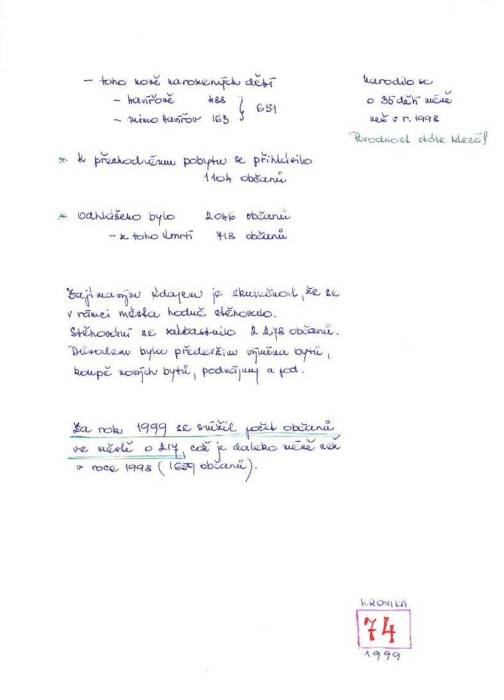 - toho nově narozených dětí
- havířově 488 } 651
- mimo Havířov 163
Narodilo se
o 35 dětí méně
než v r. 1998
Porodnost stále klesá!
* K přechodnému pobytu se přihlásilo
1104 občanů
* Odhlášeno bylo 2046 občanů
- z toho úmrtí 718 občanů
Zajímavým údajem je skutečnost, že se
v rámci města hodně stěhovalo.
Stěhování se zúčastnilo 2 278 občanů.
Důvodem byla především výměna bytů,
koupě nových bytů, podnájmy a pod.
Za rok 1999 se snížil počet občanů
ve městě o 217, což je daleko méně než
v roce 1998 ( občanů).
KRONIKA
74
1999